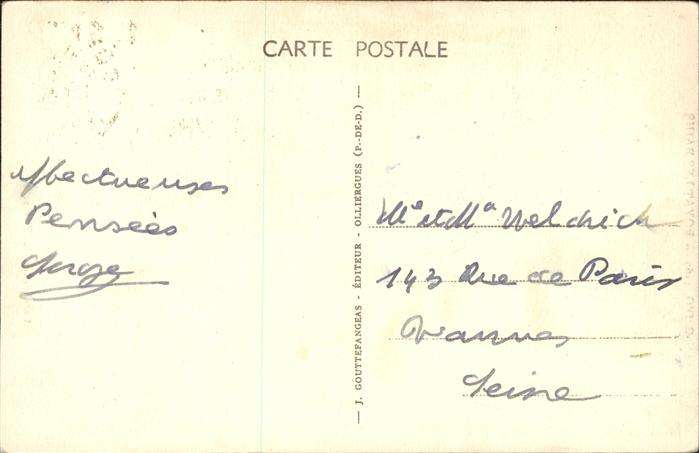 CARTE POSTALE
Affectueuses
Pensées
Serge
— J. GOUTTEFANGEAS - ÉDITEUR - OLLIERGUES (P.-DE-D.) —
Mr et Mme
143 Rue de Paris
Vanves
Seine